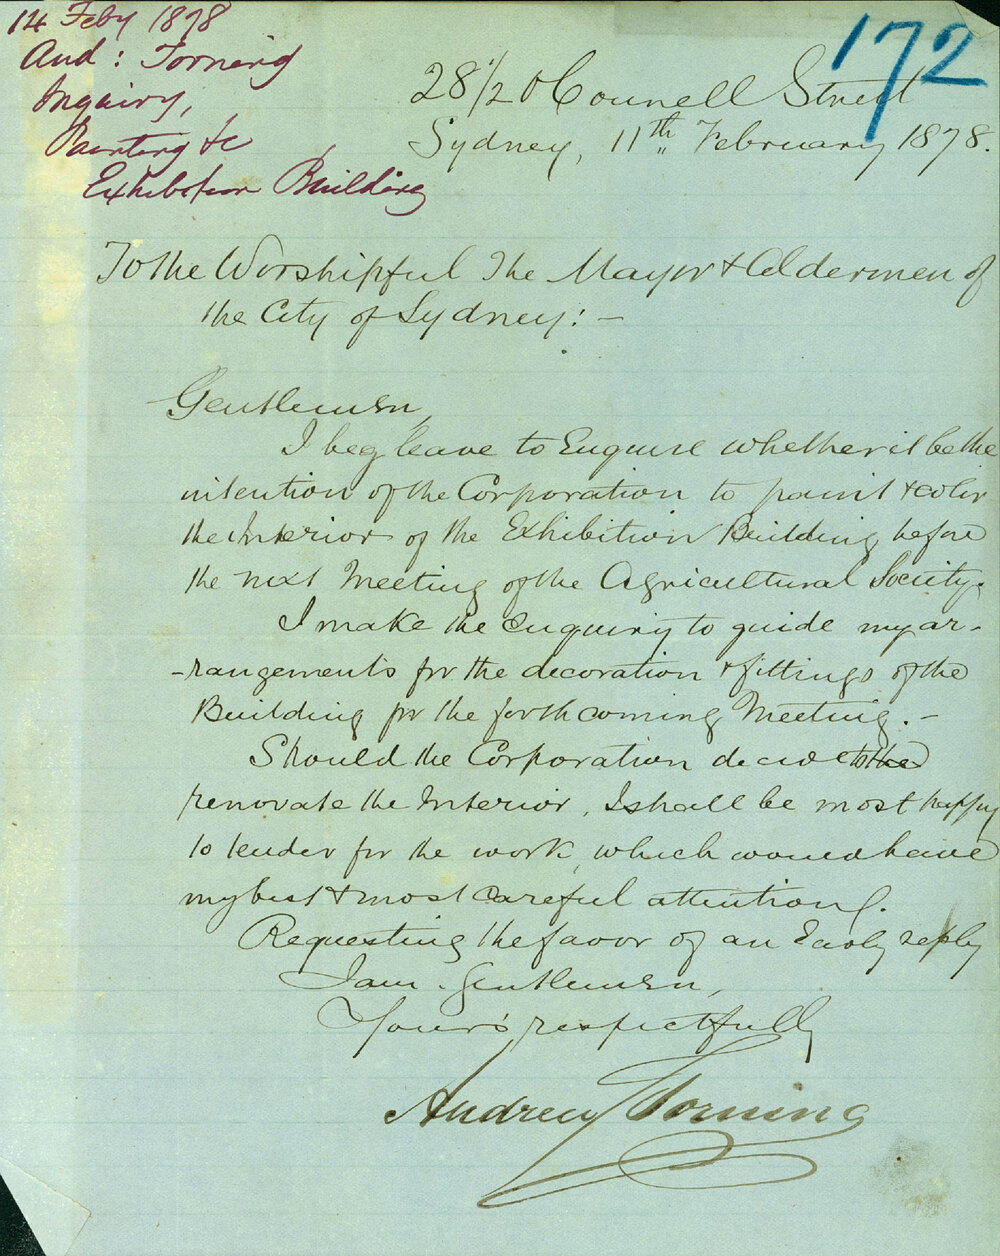 14 Feby 1878
And: Torning
Inquiry,
Painting &c
Exhibition Building
172
28 1/2 O'Connell Street
Sydney, 11th February 1878.
To the Worshipful The Mayor & Aldermen of
the City of Sydney:-
Gentlemen,
I beg leave to Enquire whether it be the
intention of the Corporation to paint & color
the Interior of the Exhibition Building before
the next Meeting of the Agricultural Society.
I make the enquiry to guide my ar-
-rangements for the decoration & fittings of the
Building for the forthcoming Meeting.-
Should the Corporation decide to
renovate the Interior, I shall be most happy
to tender for the work, which would have
my best & most careful attention.
Requesting the favor of an Early reply
I am, Gentlemen,
Yours respectfully
Andrew Torning